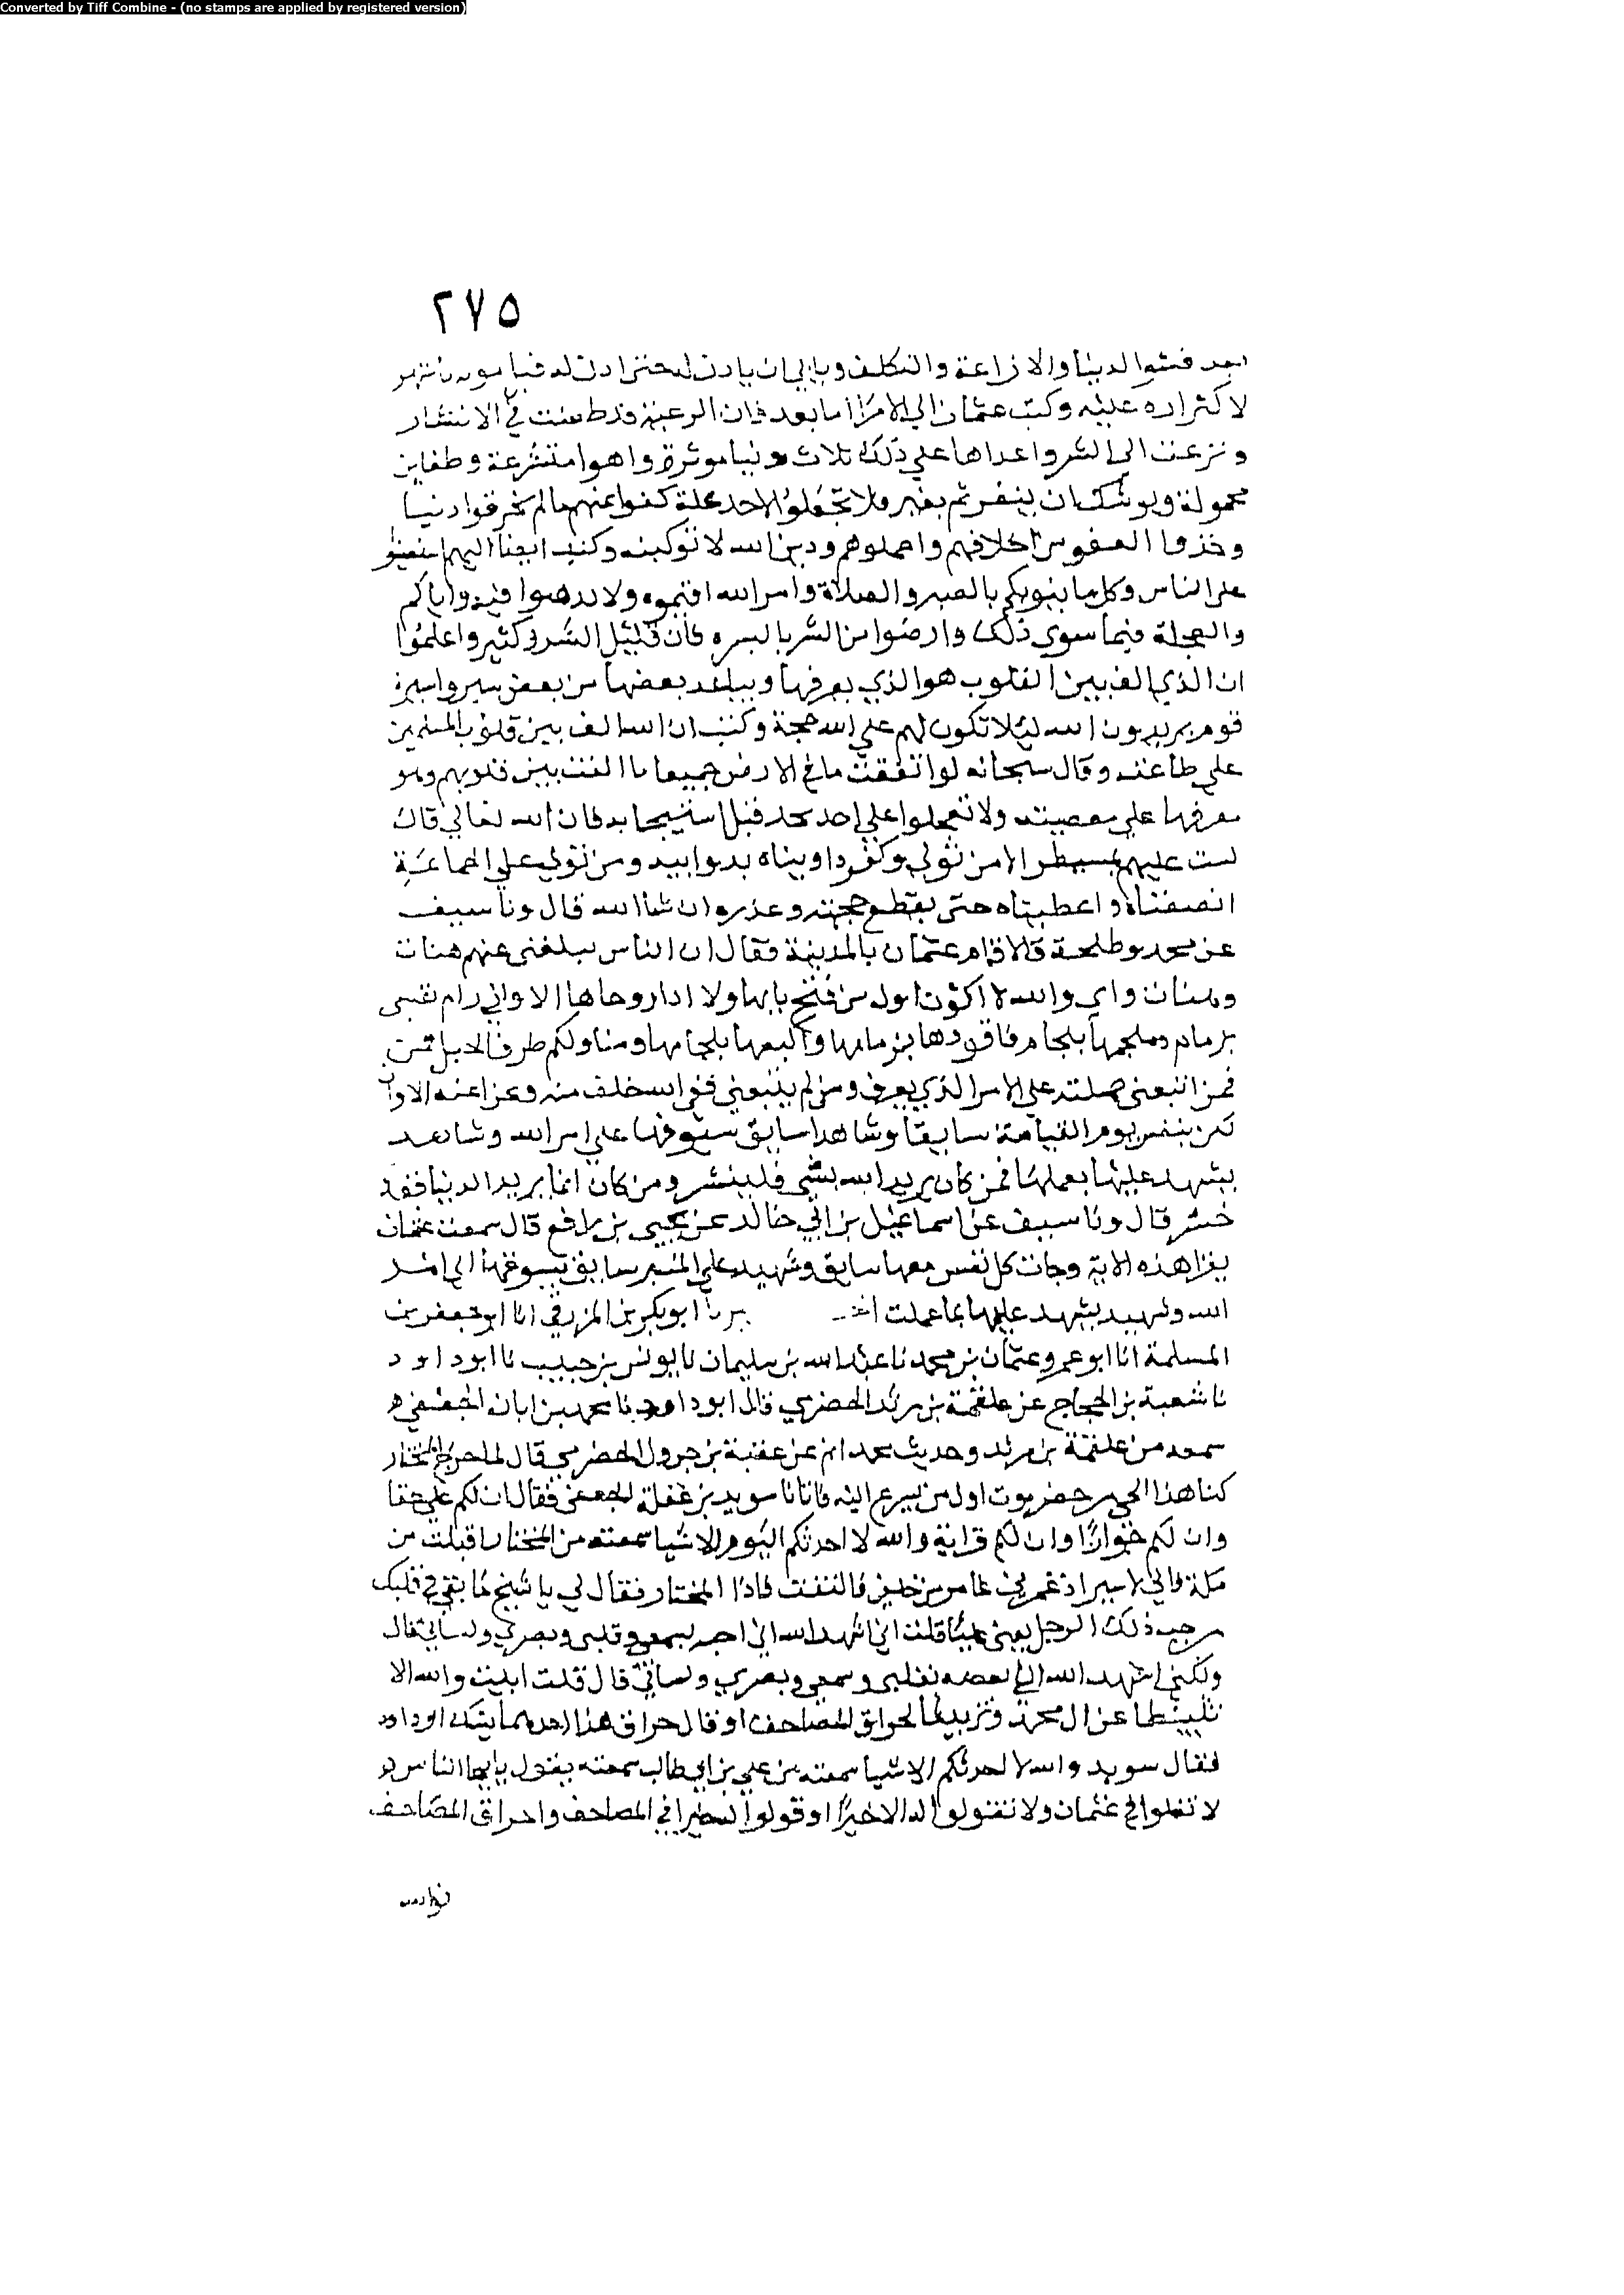 Converted by Tiff Combine - (no stamps are applied by registered version)
٢٧٥
فشو الدنيا والاذاعة والتكلف
لا كثراره عليه وكتب عثمان الي الامرا اما بعد فان الرعية قد طعنت في الانتشار
ونزعت الى الشر واعداها علي ذلك ثلاث دنيا موثرة واهوا متشرعة وطغاين
محمولة ويوشك ان ينفر ثم يغير ولا تجعلوا لاحد علة كفوا عنهم مالم يخرقوا دنيا
وخذوا العفو من اخلاقهم واحملوهم ودين الله لا توكبنه وكتب ايضا اليهم استعينوا
على الناس وكل ما ينوبكم بالصبر والصلاة وامر الله اقيموه ولا تدهنوا فيه واياكم
والعجلة فيما سوى ذلك وارضوا من الشر بايسره فان قليل الشر كثير واعلموا
ان الذي الف بين القلوب هو الذي يفرقها ويباعد بعضها من بعض سيروا سيرة
قوم يريدون الله ليلا تكون لهم علي الله حجة وكتب ان الله الف بين قلوب المسلمين
علي طاعته وقال سبحانه لو انفقت ما في الارض جميعا ما الفت بين قلوبهم وهو
مفرقها علي معصيته ولا تعجلوا علي احد بحد قبل استيجابه فان الله تعالي قال
لست عليهم بمسيطر الا من تولي وكفر داويناه بدوايه ومن تولي علي الجماعة
انصفناه واعطيناه حتى يقطع حجته وعذره ان شا الله قال ونا سيف
عن محمد وطلحة قالا قام عثمان بالمدينة فقال ان الناس يبلغني عنهم هنات
وهنات واي والله لا اكون اول من فتح بابها ولا ادار رحاها الا واني زام نفسي
بزمام وملجمها بلجام فاقودها بزمامها واكبعها بلجامها ومناولكم طرف الحبل
فمن اتبعني حملته علي الامر الذي يعرف ومن لم يتبعني ففي الله خلف منه وعزا عنه الا وان
لكل نفس يوم القيامة سايقا وشاهدا سايق يسوقها علي امر الله وشاهد
يشهد عليها بعملها فمن كان يريد الله بشي فليبشر ومن كان انما يريد الدنيا فقد
خسر قال ونا سيف عن اسماعيل بن ابي خالد عن يحيى بن رافع قال سمعت عثمان
يقرا هذه الاية وجات كل نفس معها سايق وشهيد علي المنبر سايق يسوقها الى امر
الله وشهيد يشهد عليها بما عملت ابو بكر بن المزرفي انا ابو جعفر بن
المسلمة انا ابو عمرو عثمان بن محمد نا عبد الله بن سليمان نا يونس بن حبيب نا ابو داود
نا شعبة بن الحجاج عن علقمة بن مرثد الحضرمي قال ابو داود نا محمد بن ابان الجعفي
سمعه من علقمة بن مرثد وحديث محمد اتم عن عقبة بن جرول الحضرمي قال لما خرج المختار
كنا هذا الحي من حضرموت اول من يسرع اليه فاتانا سويد بن غفلة الجعفي فقال ان لكم علي حقا
وان لكم جوارًا وان لكم قرابة والله لا احدثكم اليوم الا شيا سمعته من المختار اقبلت من
مكة واني لاسير اذ غمزني غامز من خلفي فالتفت فاذا المختار فقال لي يا شيخ ما بقي في قلبك
من حب ذلك الرجل يعني عليا قلت اني اشهد الله اني احبه بسمعي وقلبي وبصري ولساني قال
ولكني اشهد الله اني ابغضه بقلبي وسمعي وبصري ولساني قال قلت ابيت والله الا
تثبيطا عن ال محمد وترتيبا لحراق المصاحف او قال حراق هذا احدهما يشك ابو داود
فقال سويد والله لا احدثكم الا شيا سمعته من علي بن ابي طالب سمعته يقول يا ايها الناس
لا تغلوا في عثمان ولا تقولوا له الا خيرًا او قولوا له خيرا في المصاحف واحراق المصاحف